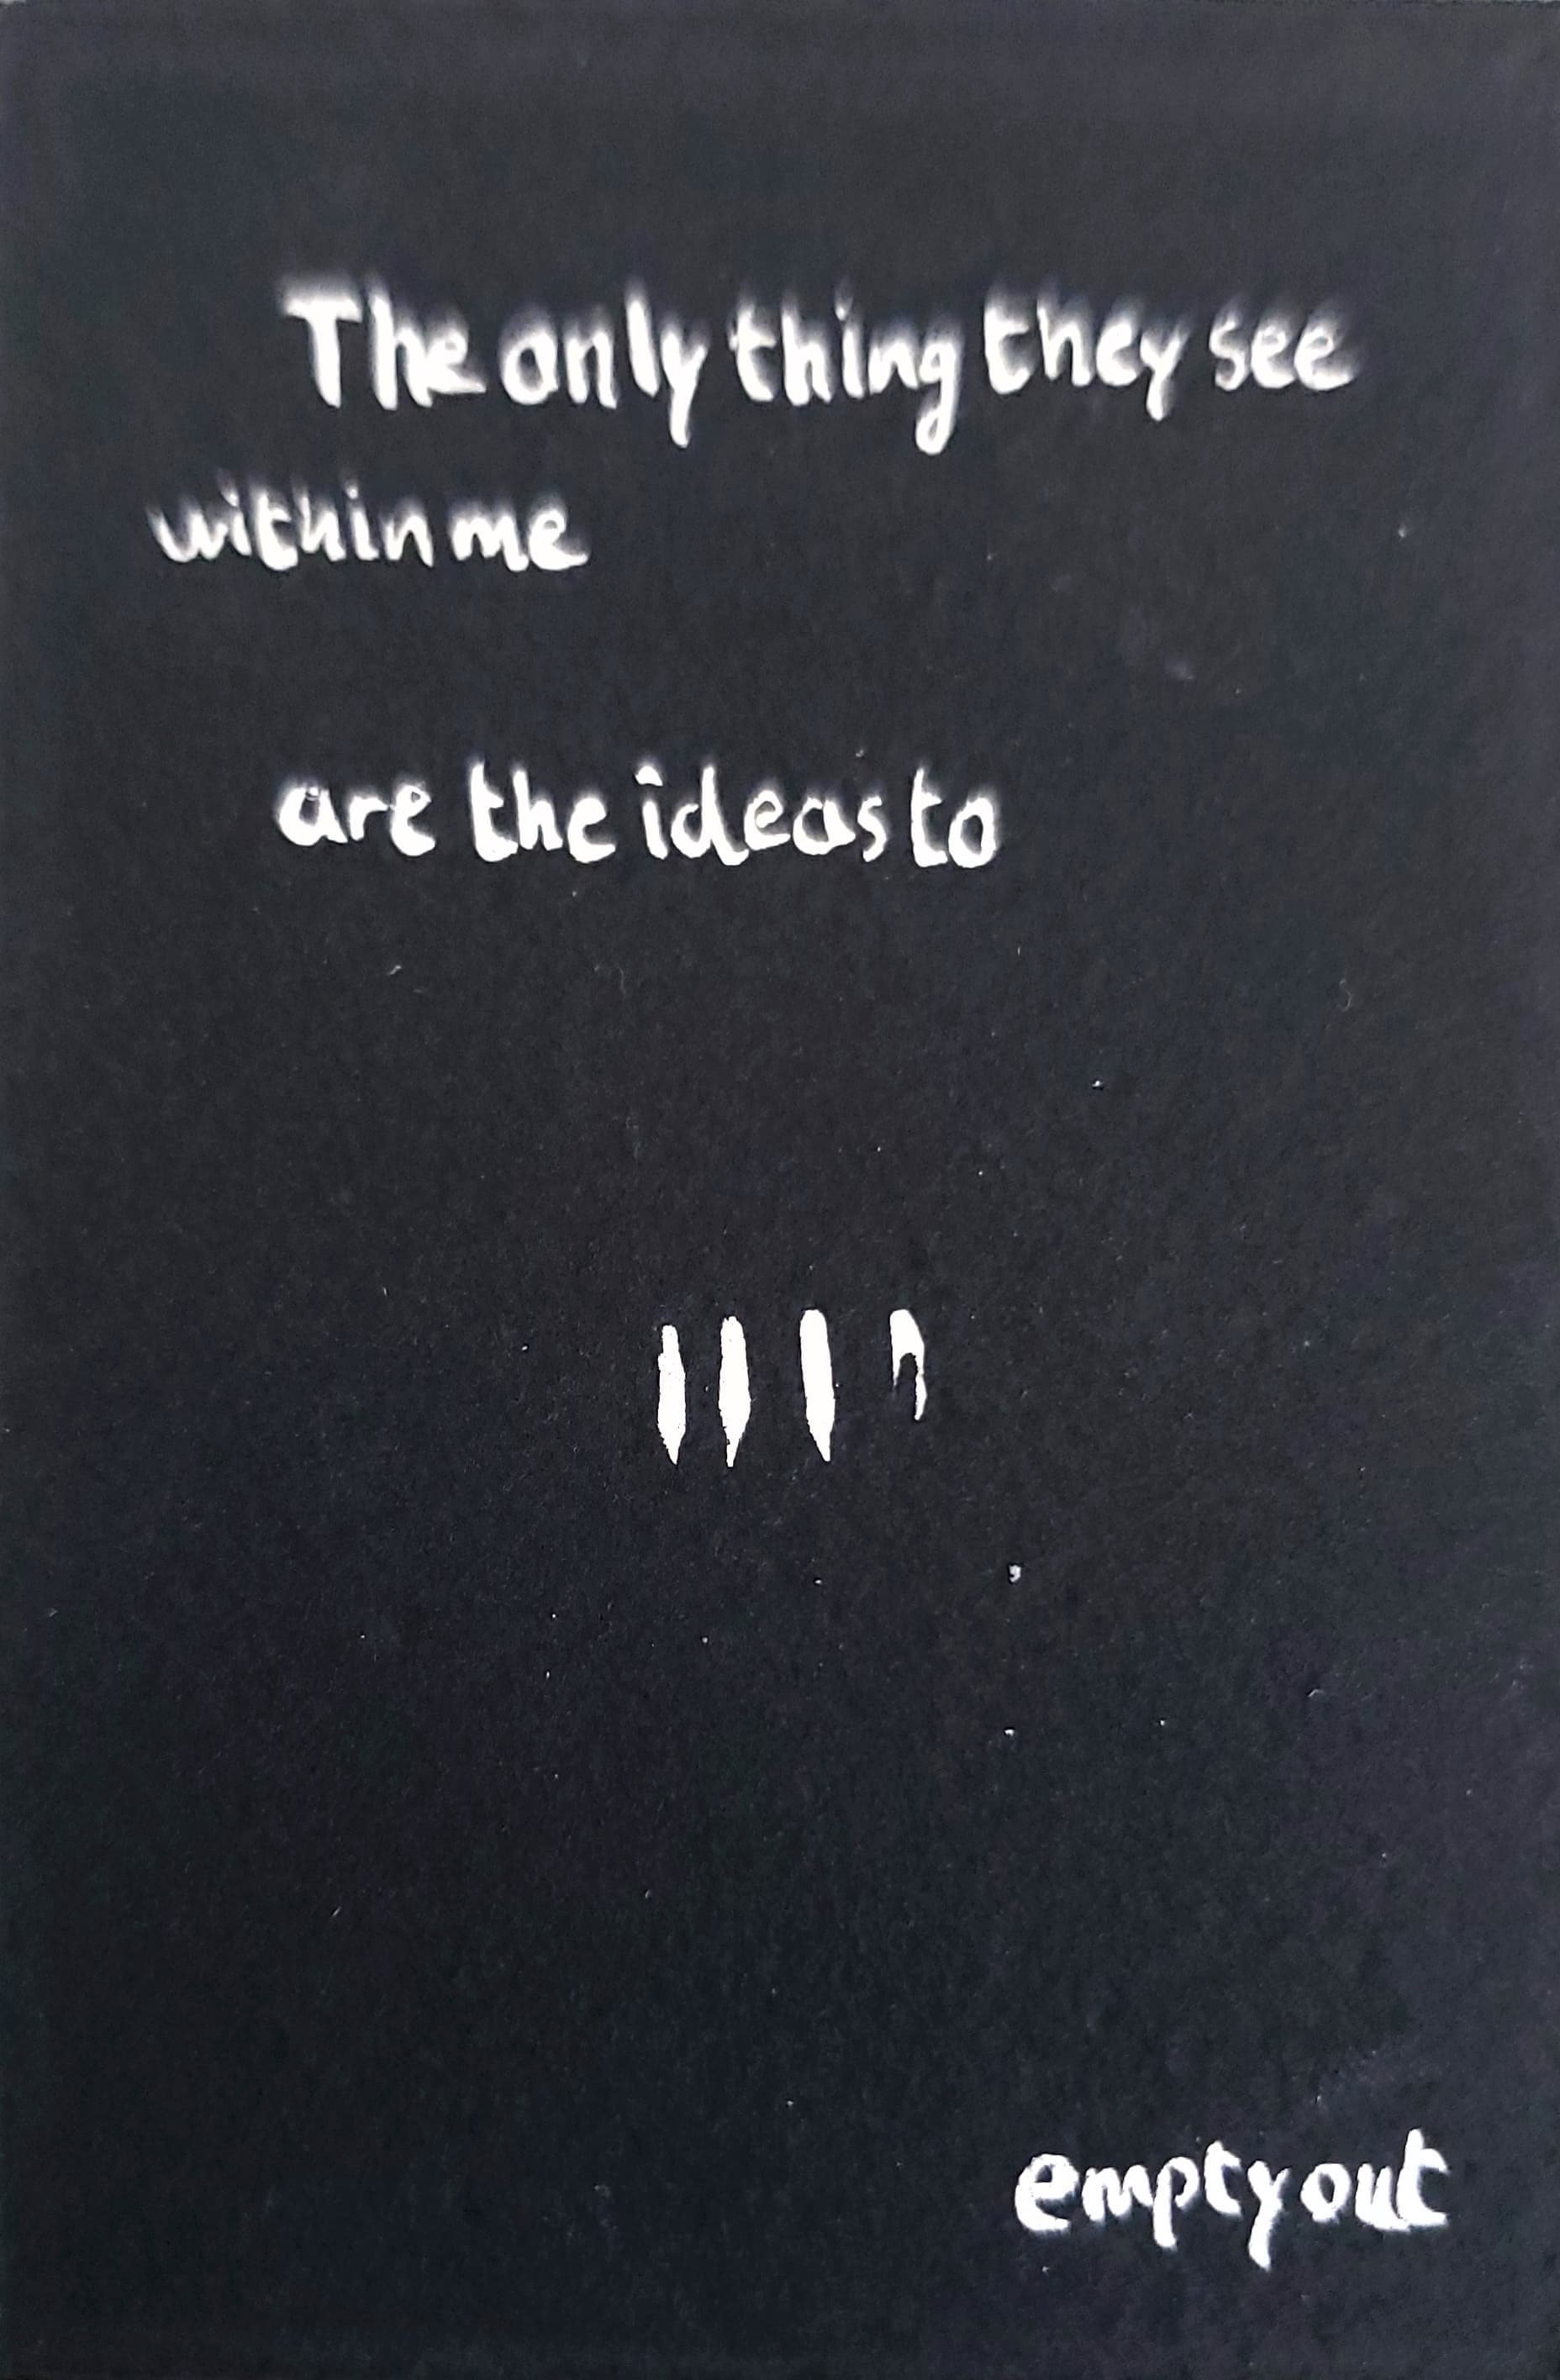 The only thing they see
within me
are the ideas to
empty out